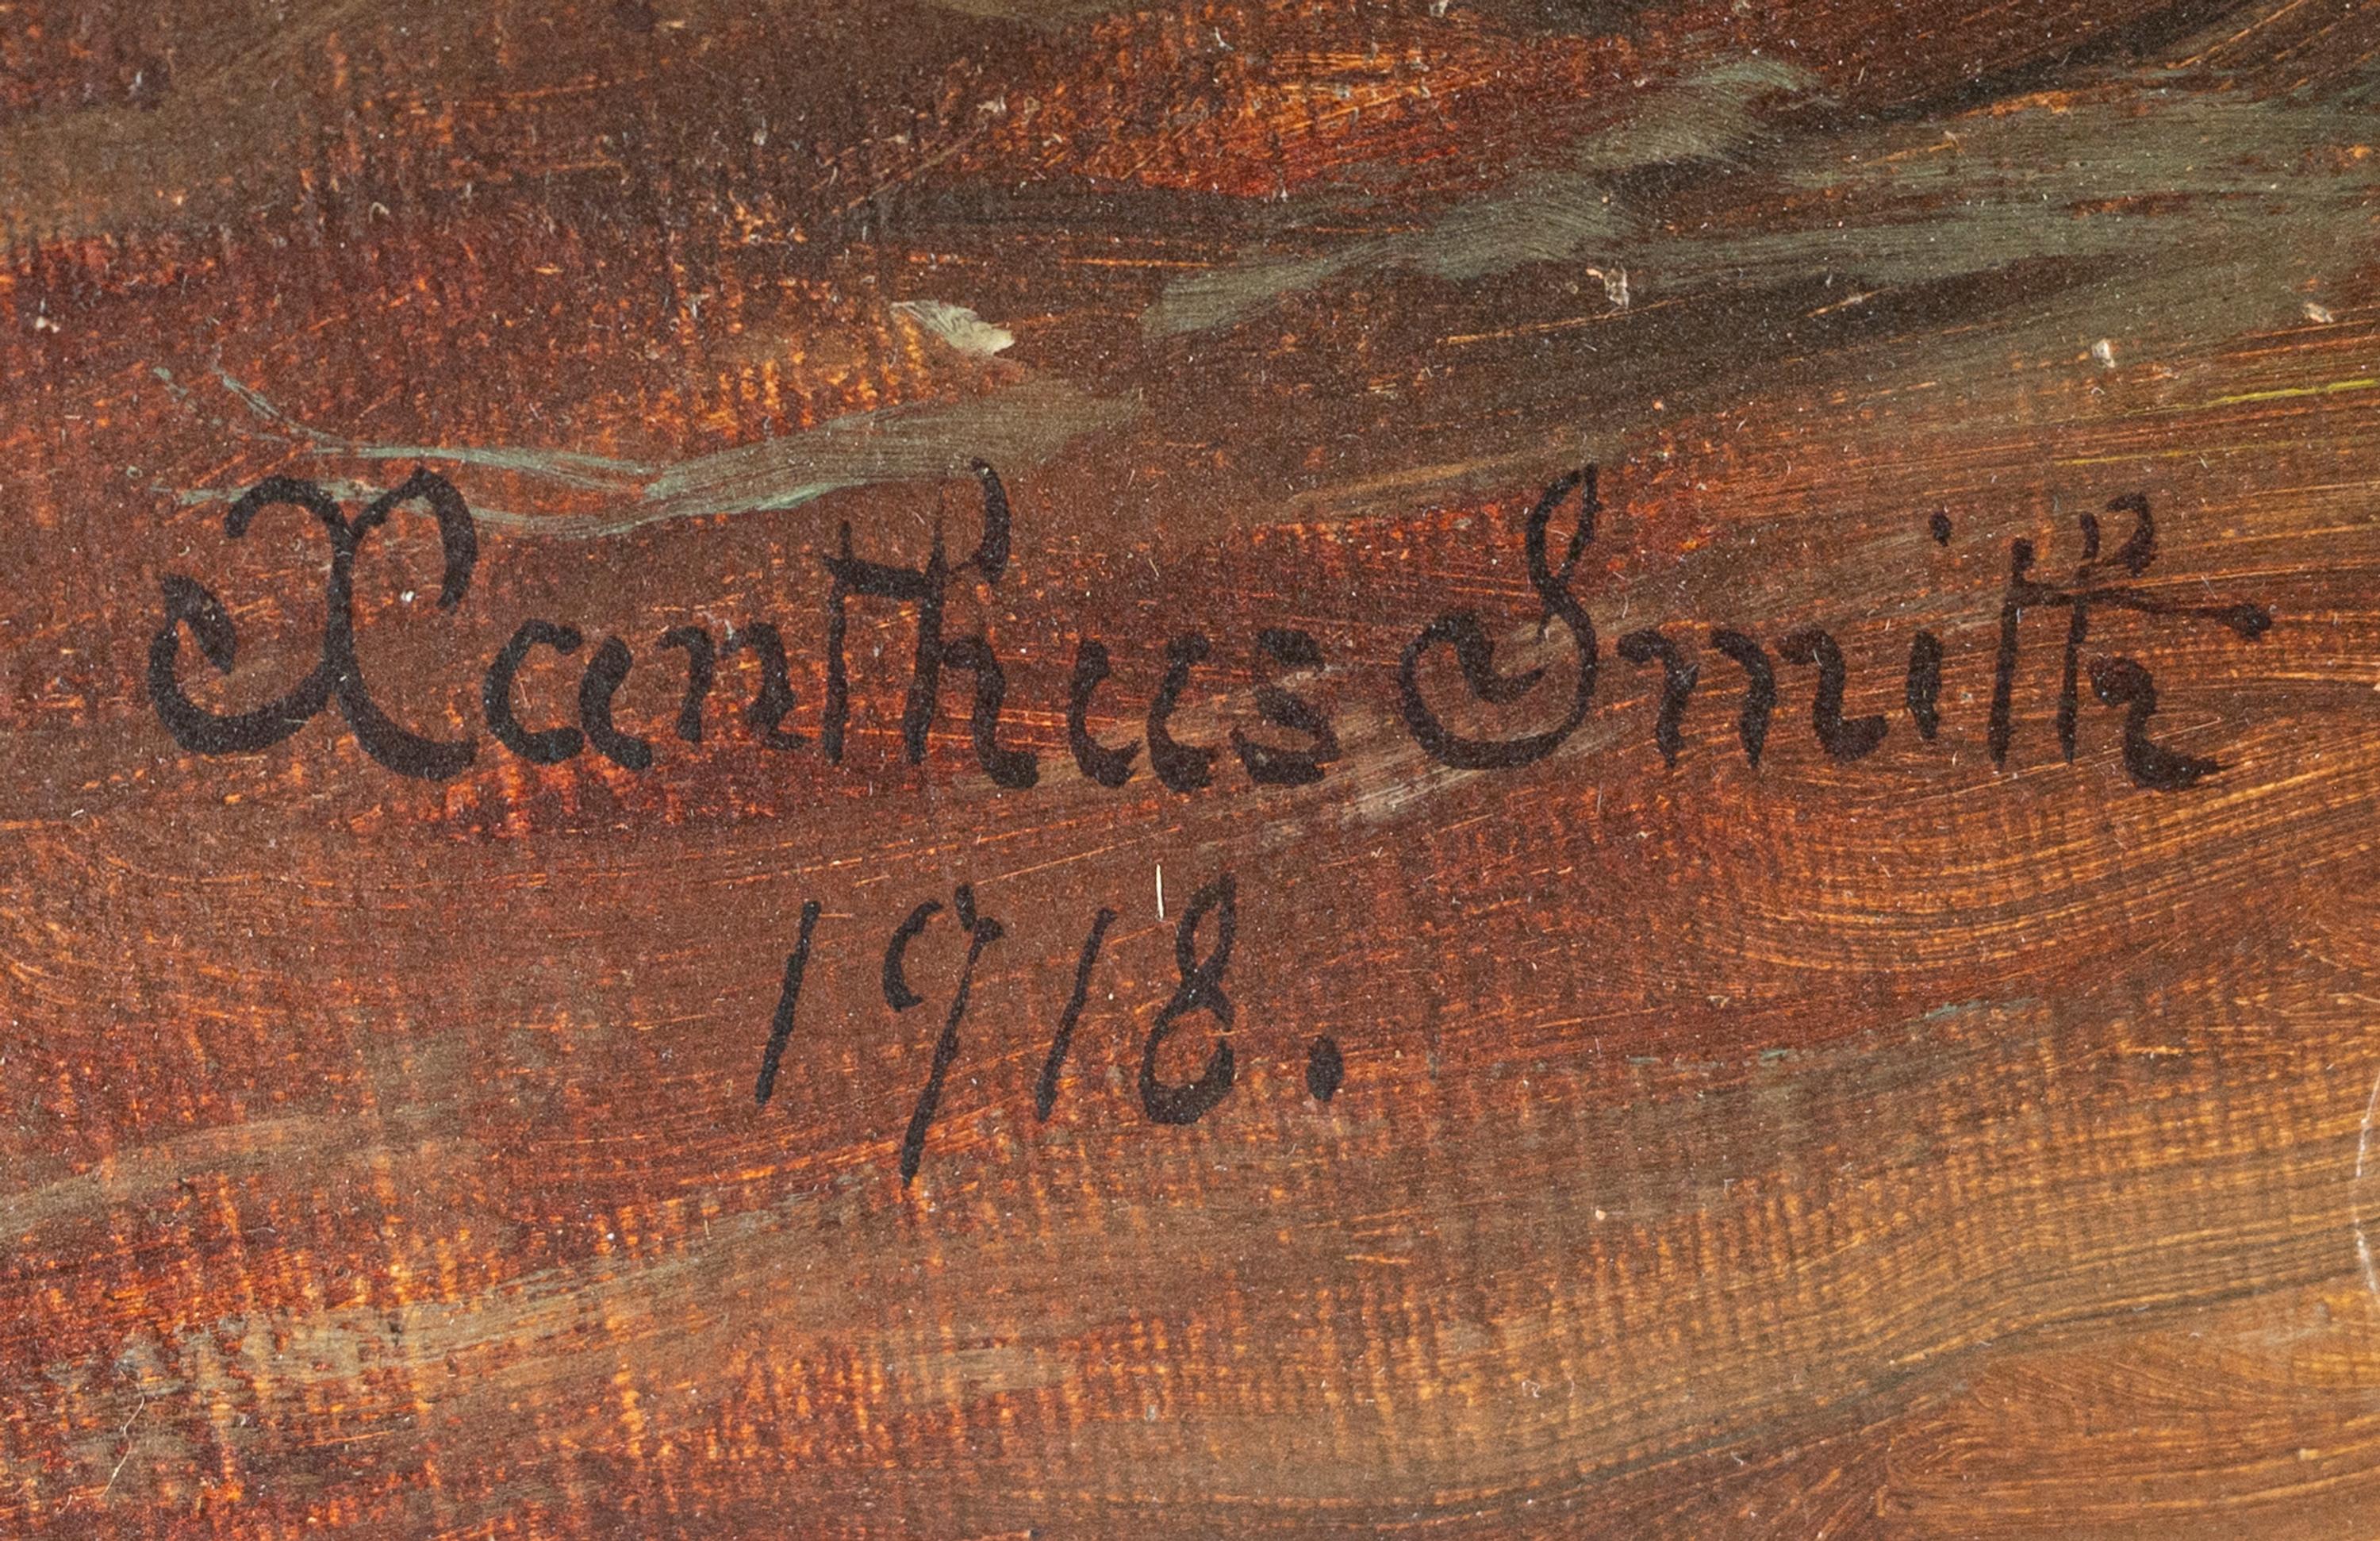 Xanthus Smith
1918.